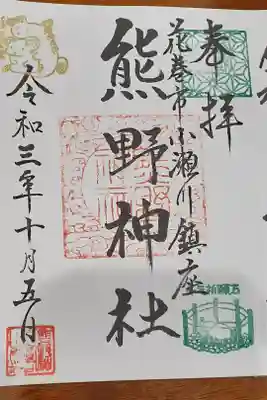 奉拝
花巻市小瀬川鎮座
熊野神社
令和三年十月五日